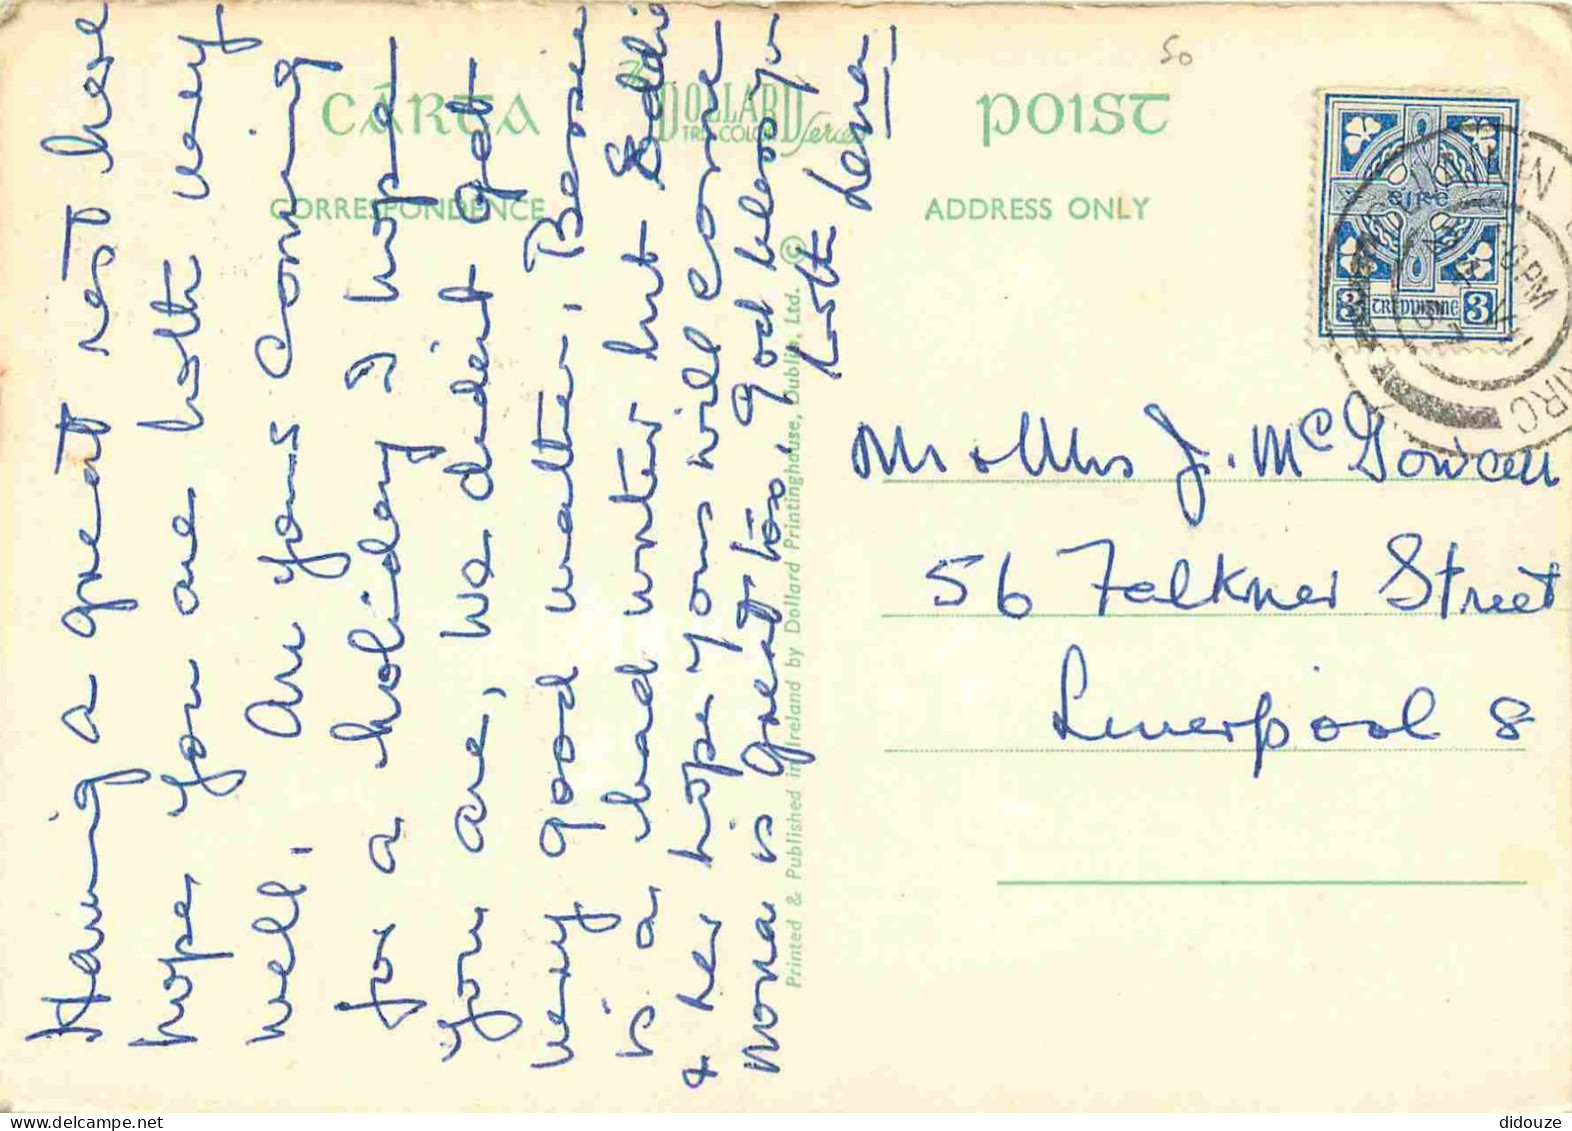 CÁRTA
POIST
DOLLARD
TRI-COLOR Series
CORRESPONDENCE
ADDRESS ONLY
50
EIRE
3 3
Having a great rest here
hope you are both very
well, Are yous coming
for a holiday I hope
you are, we dident get
very good weather, Bessie
is a bad writer but Eddie
& her hope yous will come
Mona is great too, God bless you
both Lena
Printed & Published in Ireland by Dollard Printinghouse, Dublin, Ltd. ©
Mr & Mrs J. McGowan
56 Falkner Street
Liverpool 8
didouze